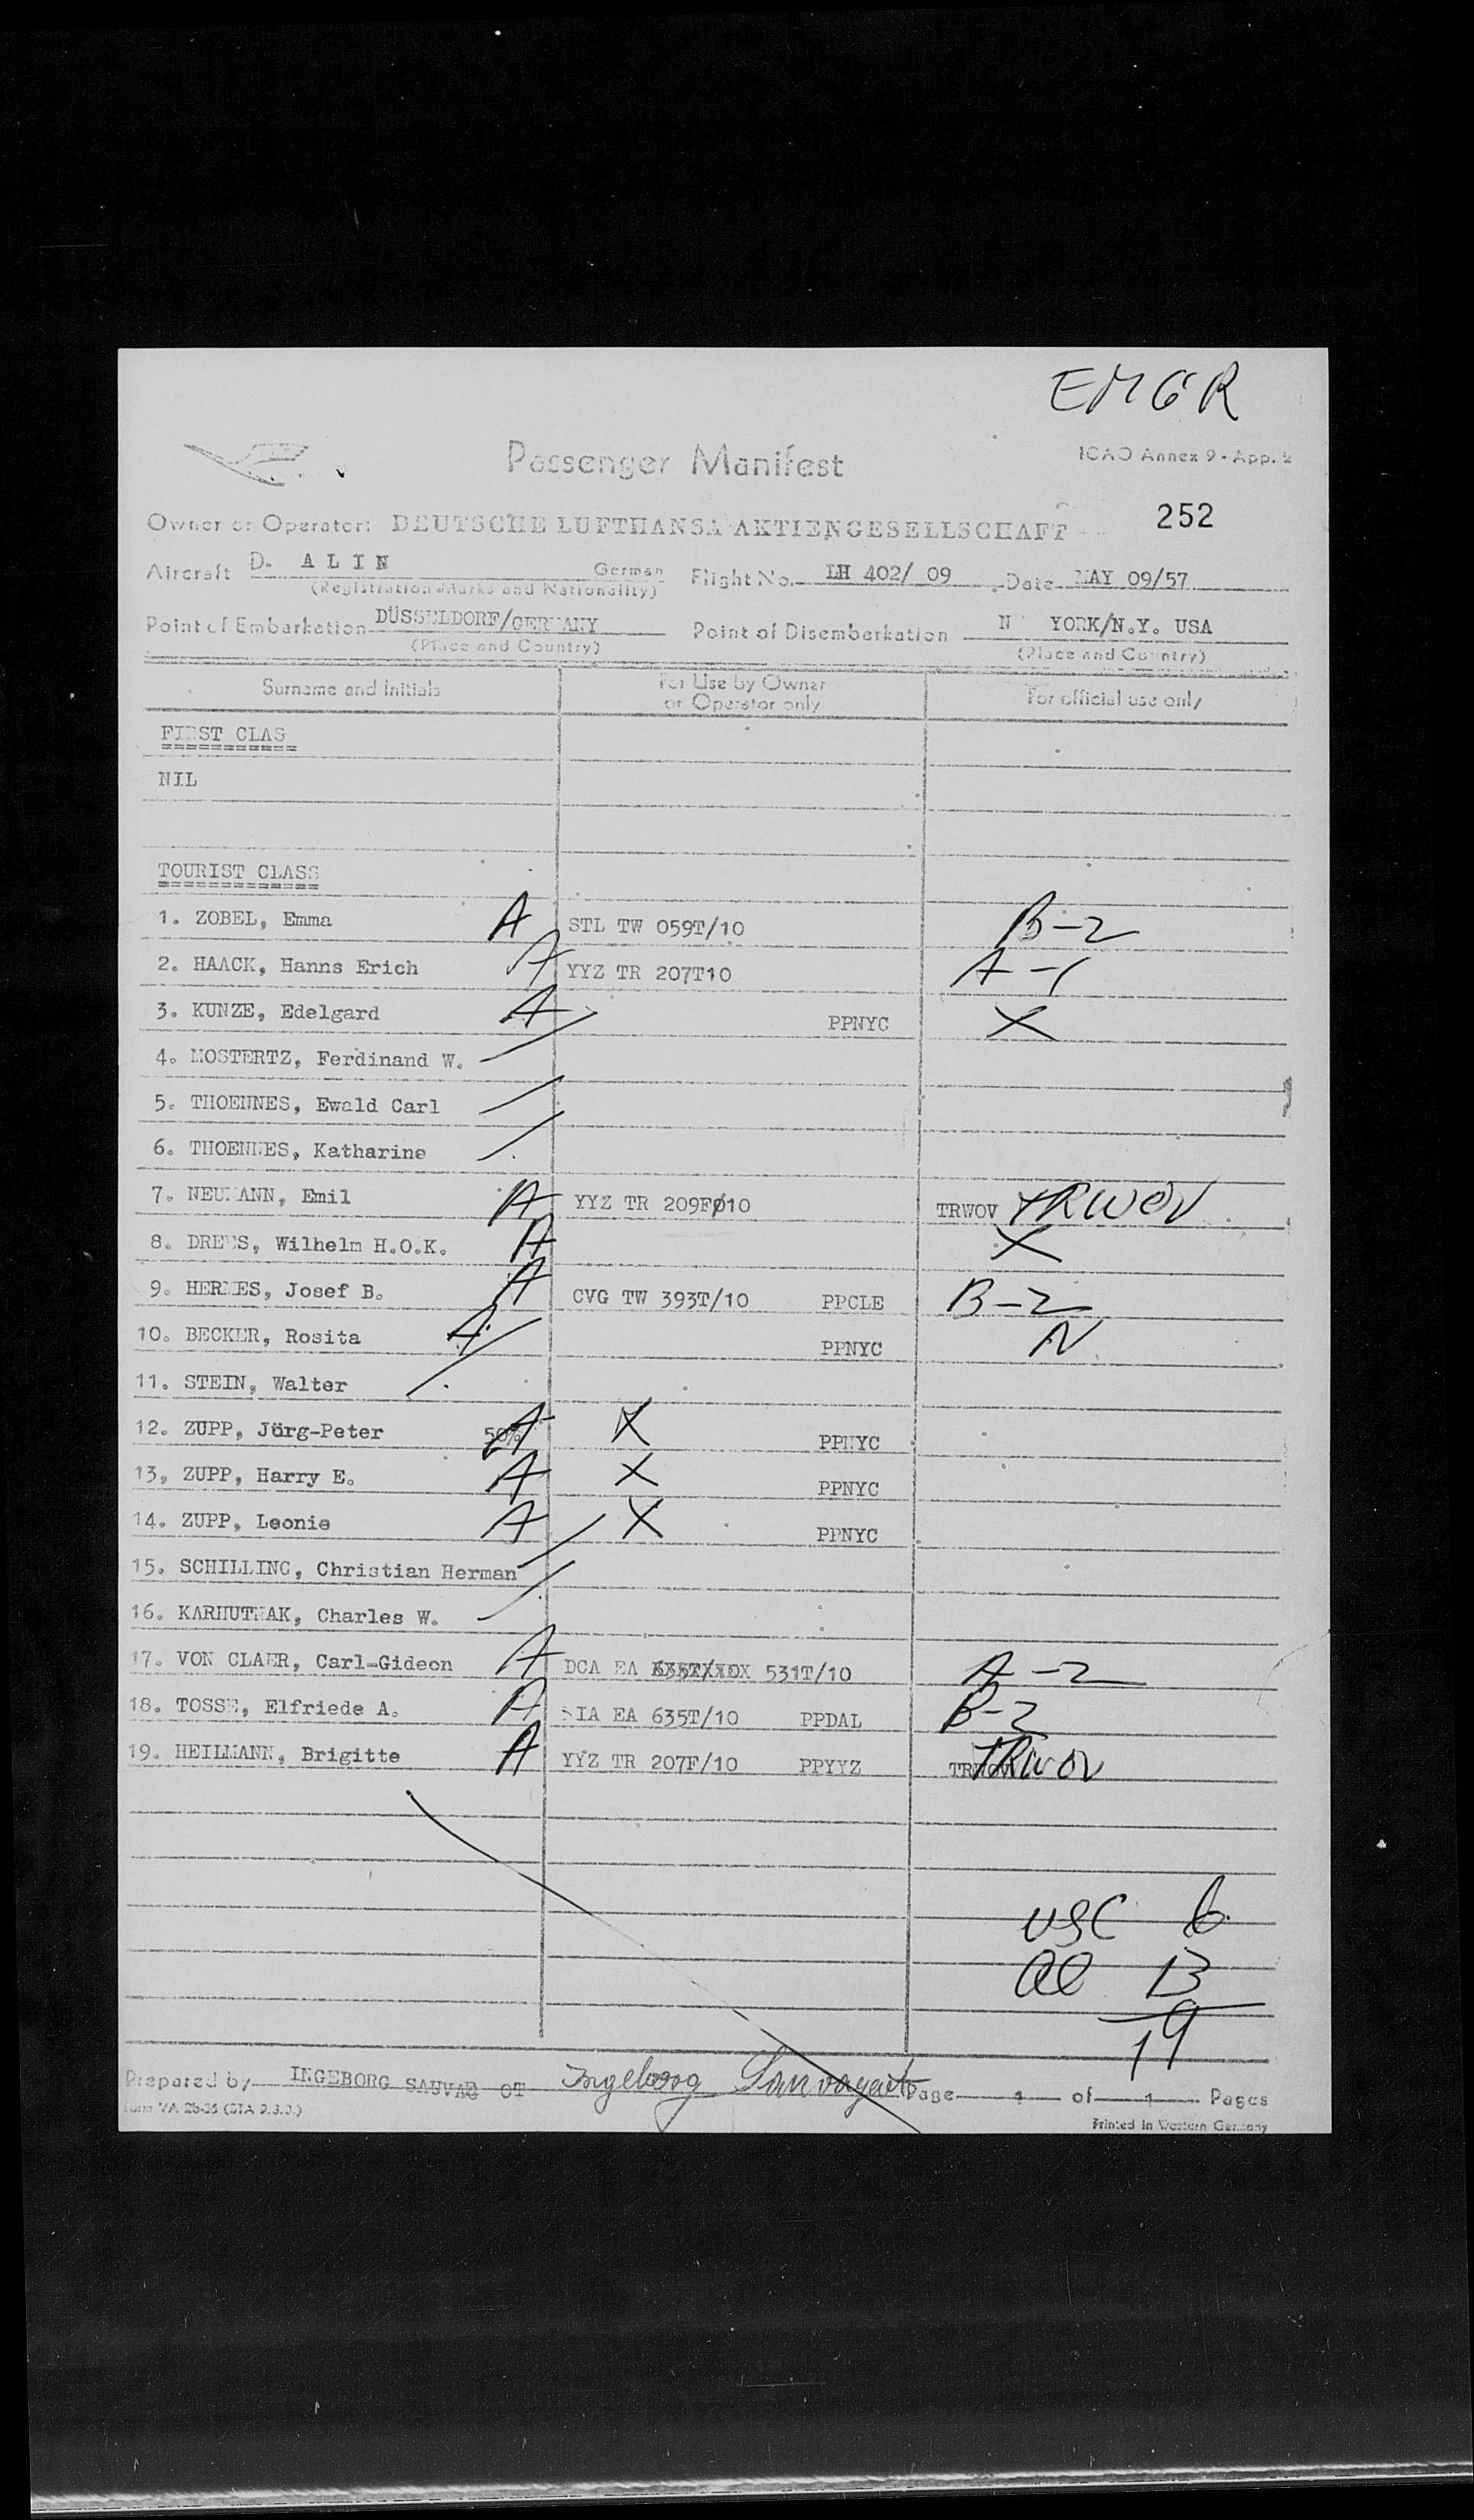 EMGR
Passenger Manifest
ICAO Annex 9 - App. 2
252
Owner or Operator: DEUTSCHE LUFTHANSA AKTIENGESELLSCHAFT
Aircraft D- ALIN German Flight No. LH 402/ 09 Date MAY 09/57
(Registration Marks and Nationality)
Point of Embarkation DÜSSELDORF/GERMANY Point of Disembarkation N YORK/N.Y. USA
(Place and Country) (Place and Country)
Surname and initials For Use by Owner or Operator only For official use only
FIRST CLAS
NIL
TOURIST CLASS
1. ZOBEL, Emma A STL TW 059T/10 B-2
2. HAACK, Hanns Erich A YYZ TR 207T10 A-1
3. KUNZE, Edelgard A PPNYC X
4. MOSTERTZ, Ferdinand W.
5. THOENNES, Ewald Carl
6. THOENNES, Katharine
7. NEUMANN, Emil A YYZ TR 209FØ10 TRWOV TRWOV
8. DREWS, Wilhelm H.O.K. A X
9. HERMES, Josef B. A CVG TW 393T/10 PPCLE B-2
10. BECKER, Rosita A PPNYC N
11. STEIN, Walter
12. ZUPP, Jörg-Peter 50% A X PPNYC
13, ZUPP, Harry E. A X PPNYC
14. ZUPP, Leonie A X PPNYC
15. SCHILLING, Christian Herman
16. KARHUTMAK, Charles W.
17. VON CLAER, Carl-Gideon A DCA EA 531T/10 A-2
18. TOSSE, Elfriede A. A IA EA 635T/10 PPDAL B-2
19. HEILMANN, Brigitte A YYZ TR 207F/10 PPYYZ TRWOV TRWOV
USC 6
al 13
19
Prepared by INGEBORG OT Ingeborg Page 1 of 1 Pages
Printed in Western Germany